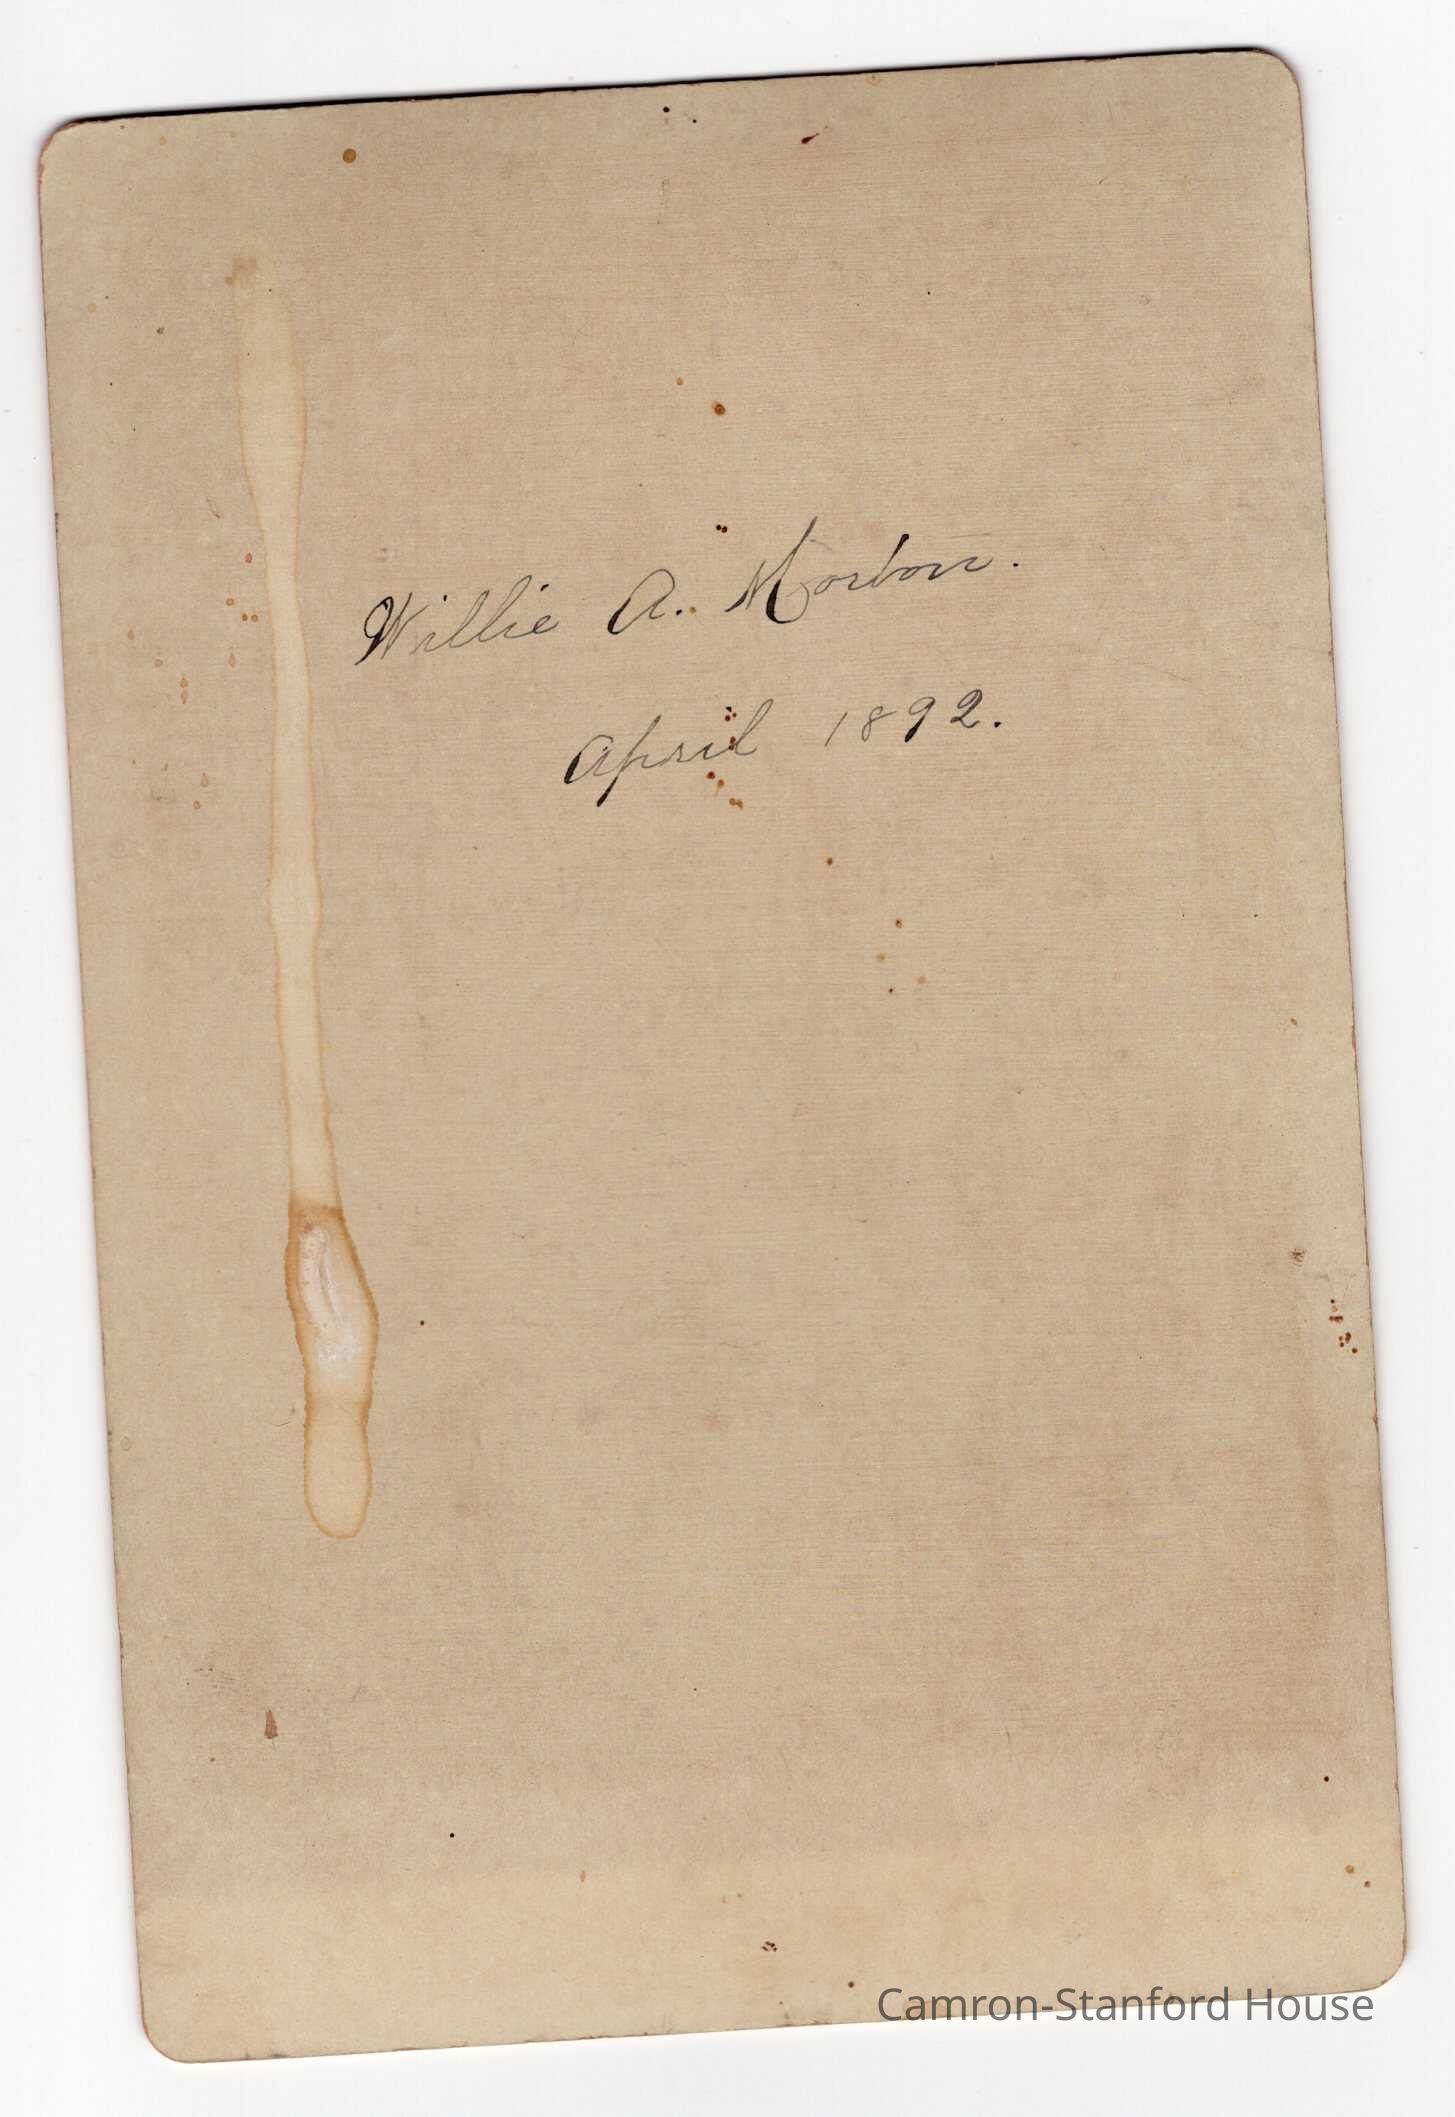 Willie A. Morton.
April 1892.
Camron-Stanford House